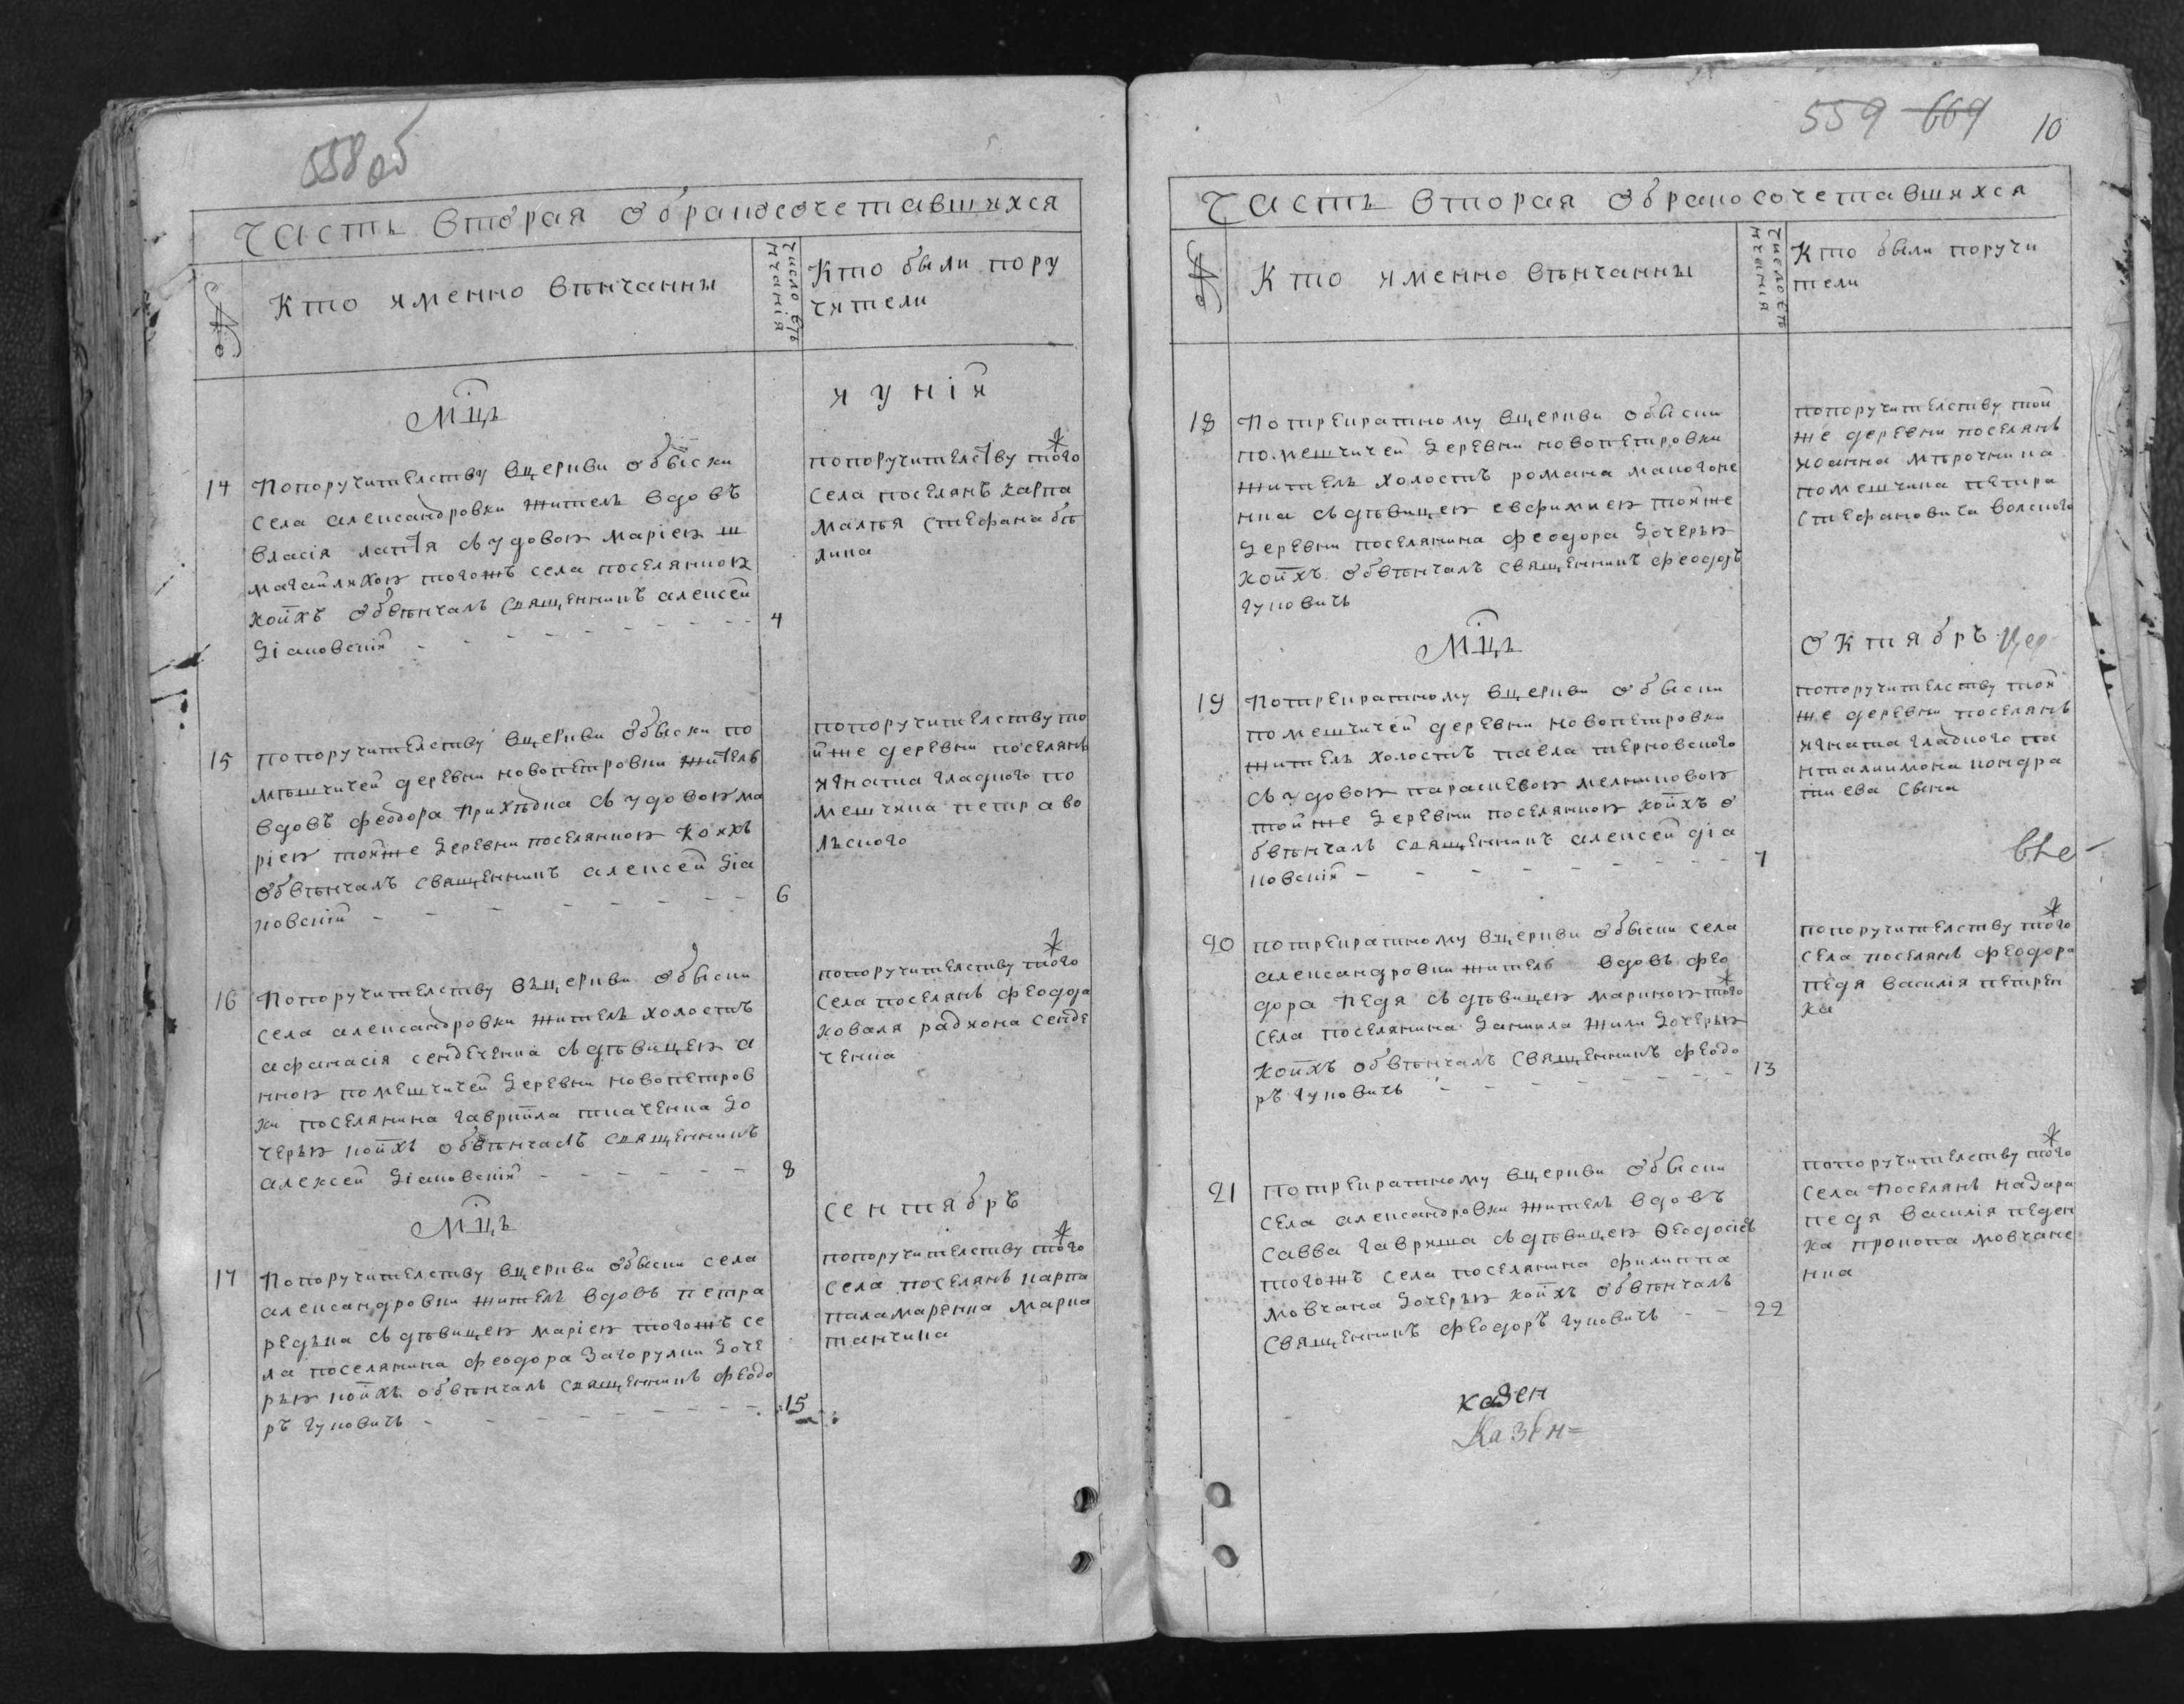 558 об
Часть вторая обракосочетавшихся
№
Кто именно венчанны
Число венчания
Кто были пору
чители
Мцъ
иунiи
14
Попоручителству вцеркви обиски
села александровки житель вдовъ
власiя лаптя съ удовою марiею ш
магайлихою тогожъ села поселянкою
коихъ обвѣнчалъ священникъ алексей
дiаковскiй
4
попоручителству того ж
села поселянъ карпа
малтья стефана бѣ
лика
15
попоручителству вцеркви обиски по
мѣщичей деревни новопетровки житель
вдовъ феодора прихѣдка съ удовою ма
рiею тойже деревни поселянкою коихъ
обвѣнчалъ священникъ алексей дiа
ковскiй
6
попоручителству то
йже деревни поселянъ
игната гладкого по
мещика петра во
лского
16
Попоручителству въцеркви обыски
села александровки житель холостъ
афанасiя сендеченка съ дѣвицею а
нною помещичей деревни новопетров
ки поселянина гаврiила ткаченка до
черью коихъ обвѣнчалъ священникъ
алексей дiаковскiй
8
попоручителству того ж
села поселянъ феодора
коваля радиона сенде
ченка
Мцъ
сентябръ
17
Попоручителству вцеркви обыски села
александровки житель вдовъ петра
редька съ дѣвицею марiею тогожъ се
ла поселянина феодора загорулки доче
рью коихъ обвѣнчалъ священникъ феодо
ръ чуновичь
15
попоручителству того ж
села поселянъ карпа
паламаренка марка
танчика
559 669 10
Часть вторая обракосочетавшихся
№
Кто именно венчанны
Число венчания
Кто были поручи
тели
18
Потрекратному вцеркви обыски
помещичей деревни новопетровки
житель холостъ романа макогоне
нка съ дѣвицею евфимиею тойже
деревни поселянина феодора дочерью
коихъ обвѣнчалъ священникъ феодоръ
чуновичь
попоручителству той
же деревни поселянъ
иоанна мѣрочника
помещика петра
стефановича волского
Мцъ
октябръ
19
Потрекратному вцеркви обыски
помещичей деревни новопетровки
житель холостъ павла терновского
съ удовою параскевою мелниковою
тойже деревни поселянкою коихъ о
бвѣнчалъ священникъ алексей дiа
ковскiй
7
попоручителству той
же деревни поселянъ
игната гладкого па
нталимона кондра
тиева свина
20
потрекратному вцеркви обыски села
александровки житель вдовъ фео
дора педя съ дѣвицею мариною того ж
села поселянина даниила жили дочерью
коихъ обвѣнчалъ священникъ феодо
ръ чуновичь
13
попоручителству того ж
села поселянъ феодора
педя василiя петрен
ка
21
потрекратному вцеркви обыски
села александровки житель вдовъ
савва гавриша съ дѣвицею феодосiею
тогожъ села поселянина филиппа
мовчана дочерью коихъ обвѣнчалъ
священникъ феодоръ чуновичь
22
попоручителству того ж
села поселянъ назара
педя василiя педен
ка прокопа мовчане
нка
казен
Казен=